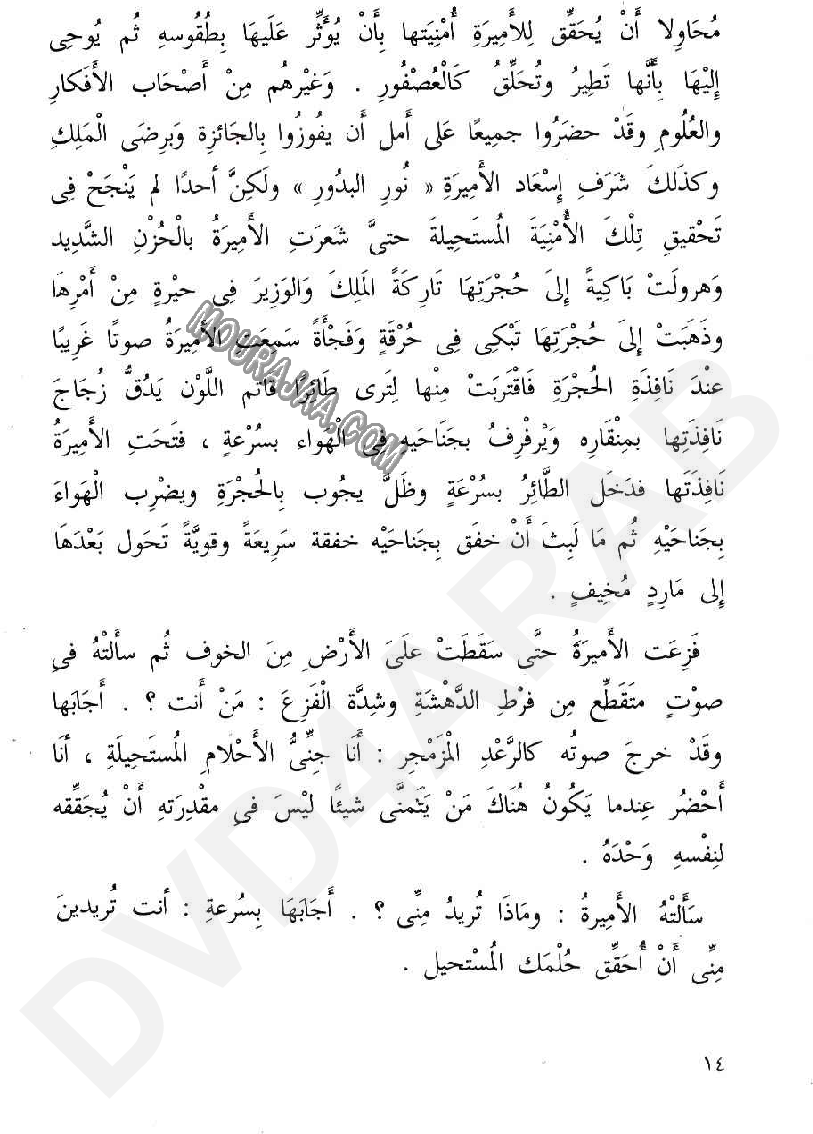 مُحَاوِلا أَنْ يُحَقِّق لِلأَمِيرَةِ أُمْنِيَتها بِأَنْ يُؤَثِّر عَلَيهَا بِطُقُوسهِ ثُم يُوحِى
إِليْهَا بِأَنَّها تَطِيرُ وتُحَلِّقُ كَالْعُصْفُورِ . وَغَيْرهُم مِنْ أَصْحَاب الأَفكارِ
والعُلُومِ وقَدْ حضَرُوا جميعًا عَلى أَمل أَن يفُوزُوا بِالجَائزة وَبرِضَى الْمَلِكِ
وكذَلكَ شَرَفِ إِسْعَاد الأَمِيرَةِ « نُورِ البدُورِ » ولَكِنَّ أحدًا لم يَنْجَحْ فِى
تَحْقيقِ تِلْكَ الأُمْنِيَةَ المُستَحيلةَ حتىَّ شعَرَتِ الأَمِيرَةُ بالْحُزْنِ الشَّدِيد
وَهرولَتْ بَاكيةً إِلىَ حُجْرَتِهَا تَارِكَةً المَلِكَ وَالوَزِيرَ فِى حيْرةٍ مِنْ أَمْرِهمَا
وذَهَبَتْ إِلىَ حُجْرَتِهَا تَبْكِى فِى حُرْقَةٍ وَفَجْأَةً سَمِعَتِ الأَمِيرَةُ صوتًا غَرِيبًا
عنْدَ نَافِذَةِ الحُجْرَةِ فَاقْتَرَبَتْ مِنْها لِتَرى طَائِرًا قَاتم اللَّوْن يَدُقُّ زُجَاجَ
نَافِذَتِها بمِنْقَارِه وَيْرفْرِفُ بجَنَاحَيهِ فِى الْهَواء بسُرْعَةٍ ، فتَحَتِ الأَمِيرَةُ
نَافِذَتَها فدَخَل الطَّائِرُ بسُرْعَةٍ وظَلَّ يجُوب بِالحُجْرَةِ ويضْرِب الْهَواءَ
بِجَناحَيْهِ ثُم مَا لَبِثَ أَنْ خفَق بِجَناحَيْه خفقة سَرِيعَةً وقويَّةً تَحَول بَعْدَهَا
إِلى مَارِدٍ مُخِيفٍ .
فَزِعَت الأَمِيرَةُ حتَّى سَقَطَتْ علَىَ الأَرْضِ مِنَ الخوف ثُم سألتْهُ فىِ
صوْتٍ متَقَطِّع مِن فرْطِ الدَّهْشَةِ وشِدَّة الْفَزِعَ : مَنْ أَنت ؟ . أَجَابَها
وقَدْ خرجَ صوتُه كالرَّعْدِ المُزَمْجرِ : أَنَا جنِّىُّ الأَحْلامِ المُستَحيلَةِ ، أنَا
أَحْضُر عِندما يَكُونُ هُنَاكَ مَنْ يَتَمنَّى شيئًا ليْسَ فىِ مقْدِرَتهِ أَنْ يُحَقِّقه
لنِفْسهِ وَحْدَهُ .
سَأَلتْهُ الأَمِيرةُ : ومَاذَا تُرِيدُ مِنِّى ؟ . أَجَابَهَا بِسُرعةٍ : أنت تُريدينَ
مِنِّى أَنْ أُحَقِّق حُلْمَك المُسْتحيل .
١٤
MOURAJAA.COM
DVD4ARAB